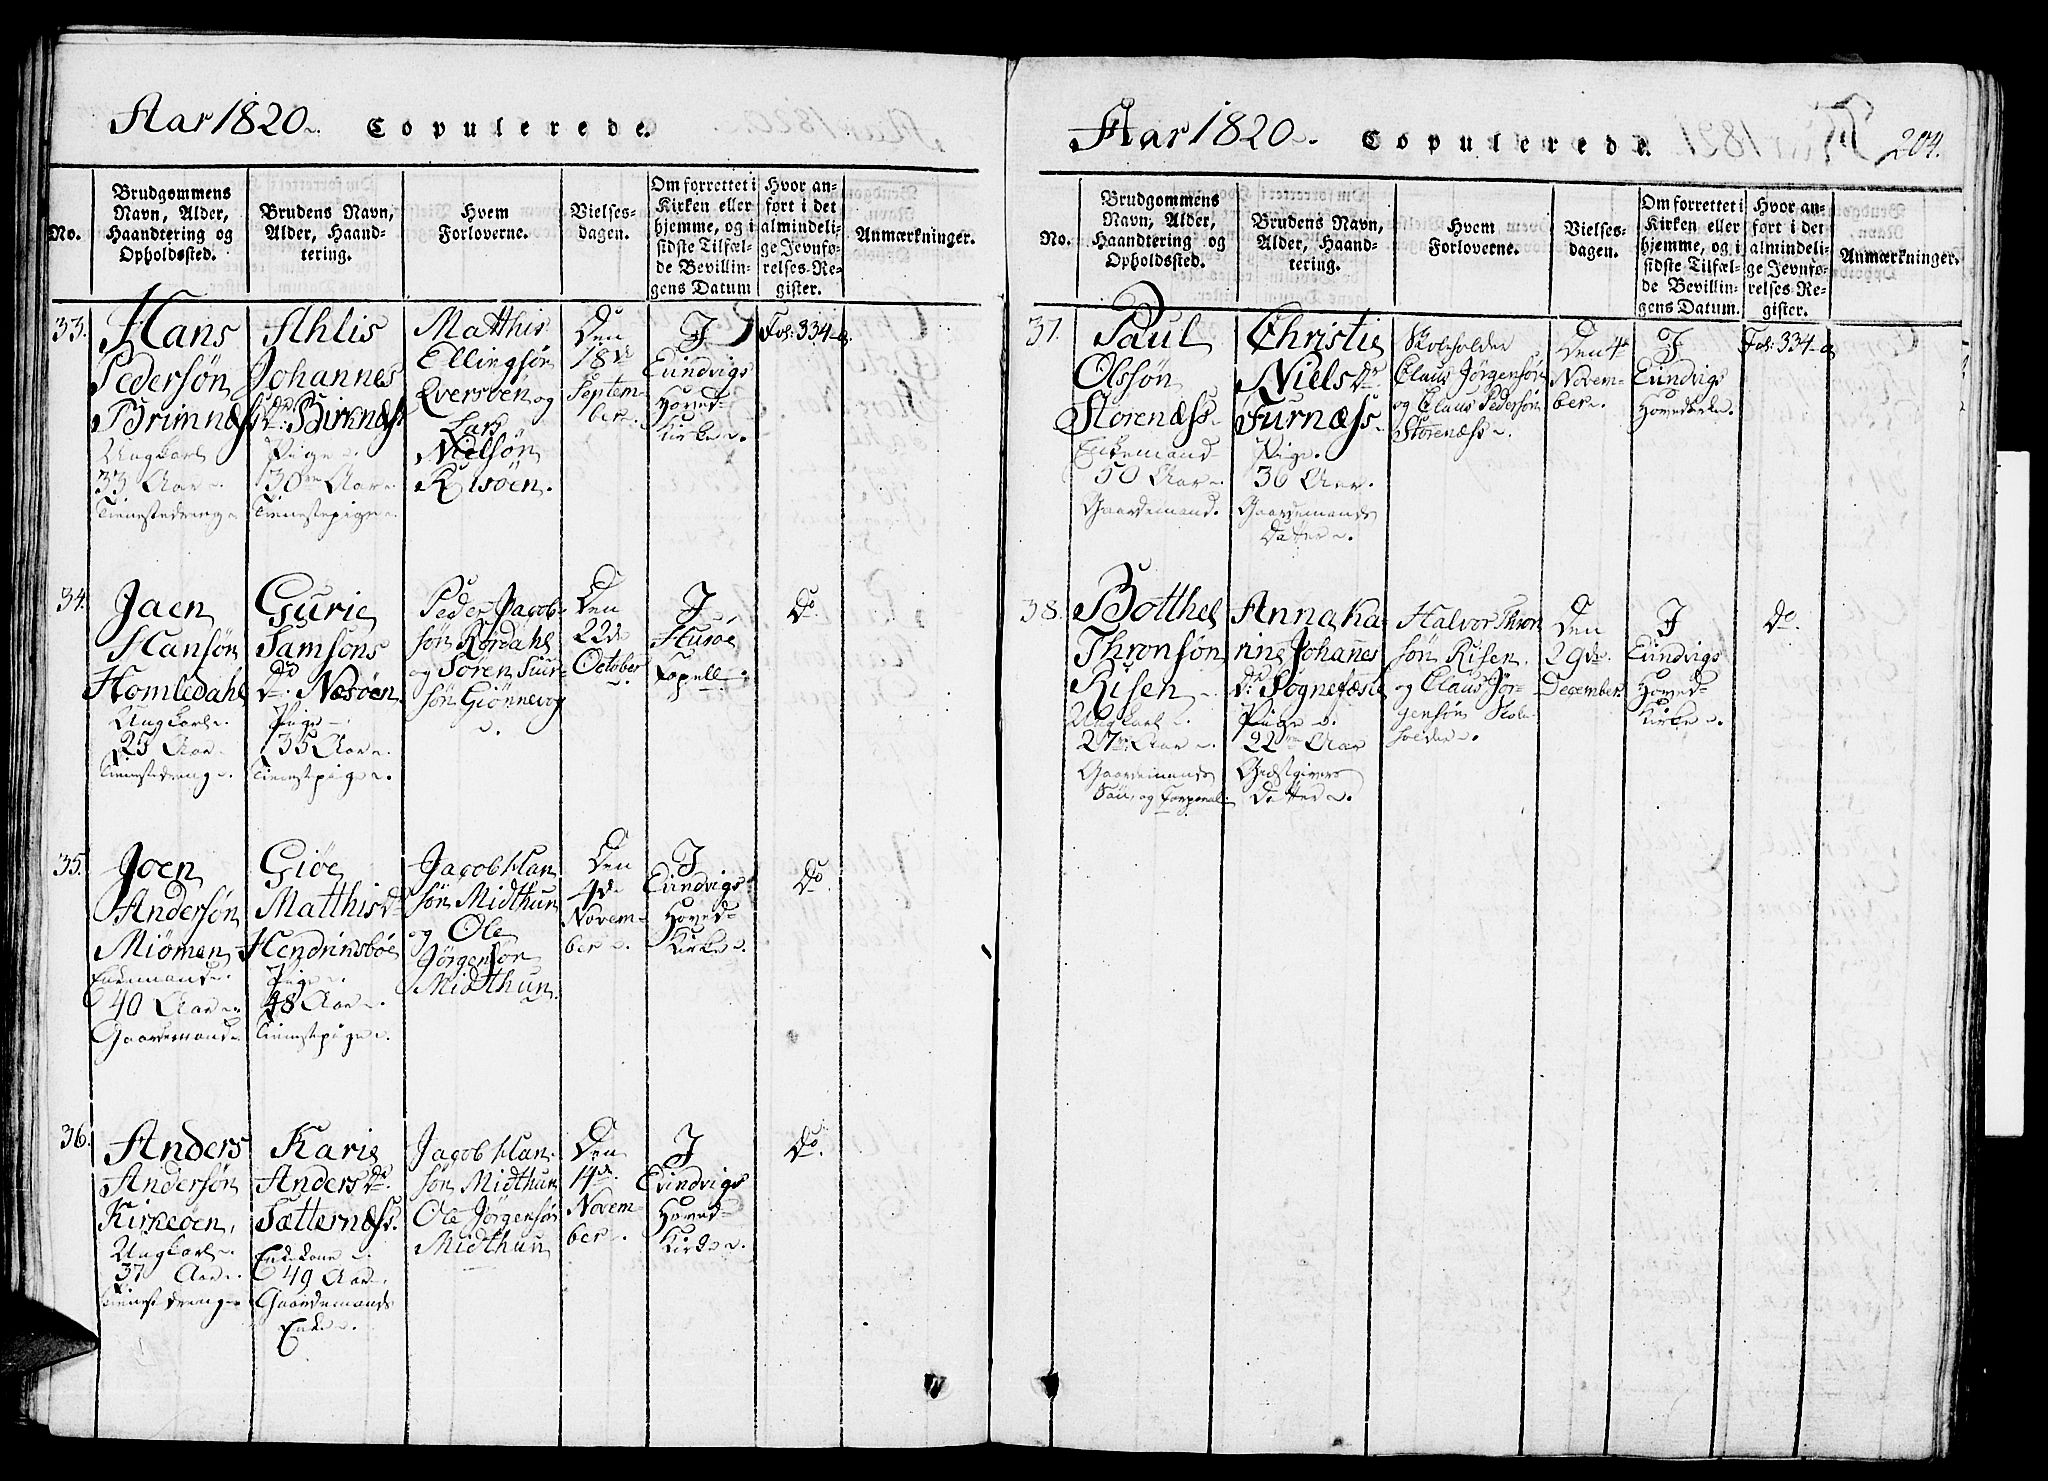 Aar 1820. Copulerede.
No.
Brudgommens
Navn, Alder,
Haandtering og
Opholdssted.
Brudens Navn,
Alder, Haand-
tering.
Hvem
Forloverne.
Vielses-
dagen.
Om forrettet i
Kirken eller
hjemme, og i
sidste Tilfæl-
de Bevillin-
gens Datum
Hvor an-
ført i det
almindeli-
ge Jevnfø-
relses-Re-
gister.
Anmærkninger.
33.
Hans
Pedersøn
Brimnæs
Ungkarl
33 Aar
Tienestedreng
Ahlis
Johannes
Dr. Birknæs
Pige
30 Aar
Tienestepige
Matthis
Ellingsøn
Qversøen og
Lars
Nielsøn
Kilsøen.
Den
18de
Septem-
ber
I
Eündvigs
Hoved-
Kirke
Fol: 334-a
34.
Jaen
Hansøn
Homledahl
Ungkarl
25 Aar
Tienestedreng
Gurie
Samsons
Dr. Næsøen
Pige
35 Aar
Tienestepige
Peder Jacob-
søn Rørdahl
og Søren Siur-
søn Giønnevog
Den
22de
October
I
Husøe
Capell
Do.
35.
Joen
Andersøn
Miømen
Enkemand
40 Aar
Gaardemand
Giøe
Matthis Dr
Hendrinsbøe
Pige
48 Aar
Tienestepige
Jacob Han
søn Midthun
og Ole
Jørgensøn
Midthun.
Den
4de
Novem-
ber
I
Eündvigs
Hoved-
Kirke
Do.
36.
Anders
Andersøn
Kirkeøen
Ungkarl
37 Aar
Tienestedreng
Karie
Anders Dr.
Sætternæss.
Enkekone
49 Aar
Gaardemands
Enke
Jacob Han
søn Midthun
Ole Jørgensøn
Midthun
Den
4de
Novem-
ber
I
Eündvigs
Hoved-
Kirke
Do.
Aar 1820. Copulerede.
204.
No.
Brudgommens
Navn, Alder,
Haandtering og
Opholdssted.
Brudens Navn,
Alder, Haand-
tering.
Hvem
Forloverne.
Vielses-
dagen.
Om forrettet i
Kirken eller
hjemme, og i
sidste Tilfæl-
de Bevillin-
gens Datum.
Hvor an-
ført i det
almindeli-
ge Jevnfø-
relses-Re-
gister.
Anmærkninger.
37.
Paul
Olssøn
Storenæss
Enkemand
50 Aar
Gaardemand.
Christie
Niels Dr.
Furnæss
Pige
36 Aar.
Gaardemands
Datter
Skoleholder
Claus Jørgensøn
og Claus Pedersøn
Storenæss
Den 4de
Novem-
ber
I
Eündvigs
Hovedkirke.
Fol: 334-a
38.
Botthel
Thronsøn
Risen
Ungkarl
27 Aar
Gaardemands
Søn og Corporal
Anna Ka
rine Johanes
Dr. Sognefæste
Pige
22 Aar
Giestgivers
Datter
Halvor Thron
søn Risen
og Claus Jør-
gensøn Skole
holder
Den
29de
December.
I
Eündvigs
Hoved-
Kirke
Do.